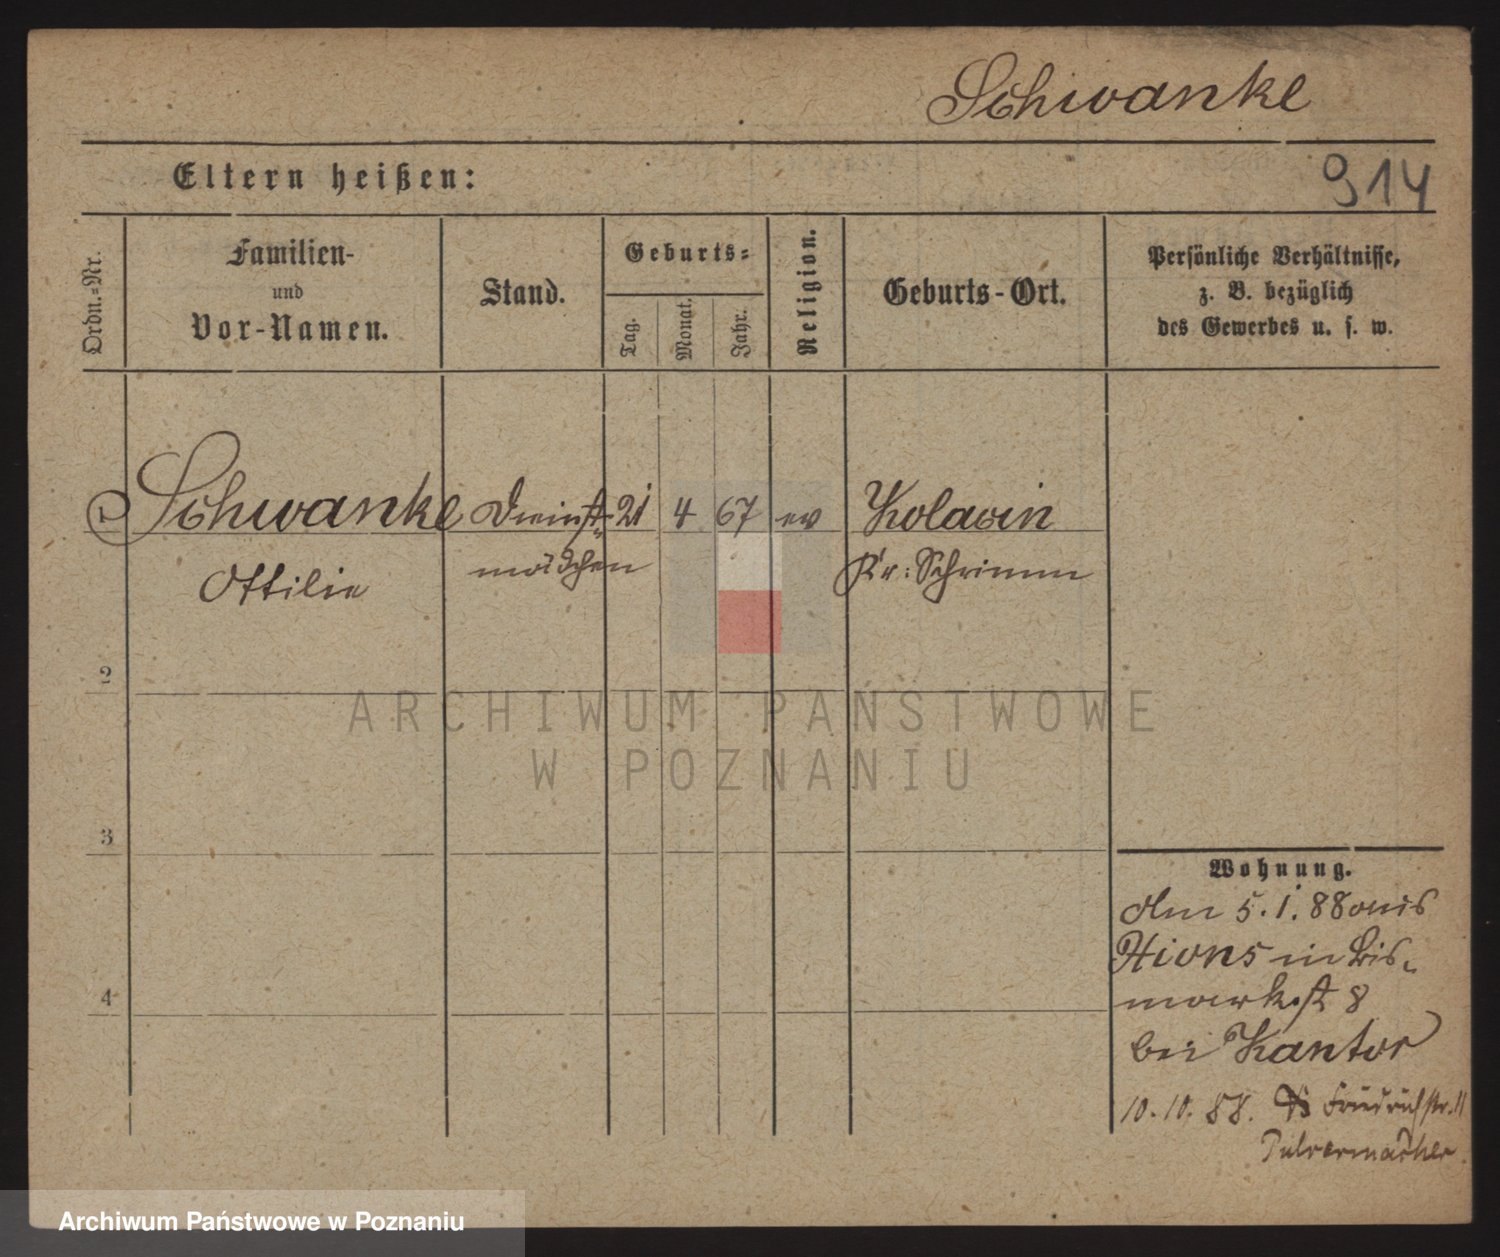 Schwanke
Eltern heißen:
914
Ordn.-Nr.
Familien-
und
Vor-Namen.
Stand.
Geburts-
Tag.
Monat.
Jahr.
Religion.
Geburts-Ort.
Persönliche Verhältnisse,
z. B. bezüglich
des Gewerbes u. s. w.
1 Schwanke Dienst- 21 4 67 ev Kolacin
Ottilie mädchen Kr: Schrimm
2
3
4
ARCHIWUM PAŃSTWOWE
W POZNANIU
Wohnung.
Am 5.1.88 aus
Xions in Bis-
markst 8
bei Kantor
10.10.88. Friedrichstr. 11
Pulvermacher
Archiwum Państwowe w Poznaniu